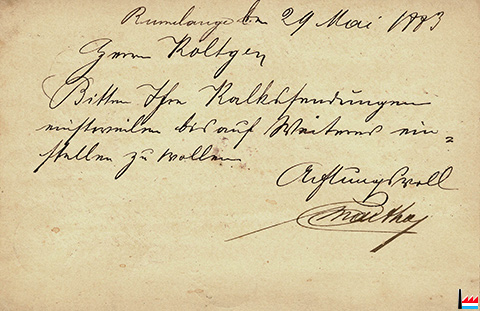 Rumelange den 29 Mai 1883
Herrn Koltgen
Bitten Ihre Kalksendungen
einstweilen bis auf Weiteres ein=
stellen zu wollen
Achtungsvoll